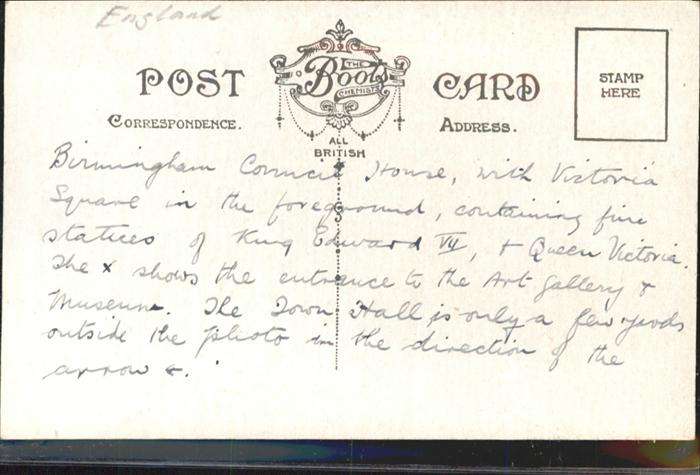 England
POST CARD
THE
Boots
CHEMISTS
STAMP
HERE
CORRESPONDENCE.
ADDRESS.
ALL
BRITISH
Birmingham Council House, with Victoria
Square in the foreground, containing fine
statues of King Edward VII, + Queen Victoria.
The x shows the entrance to the Art Gallery +
Museum. The Town Hall is only a few yards
outside the photo in the direction of the
arrow